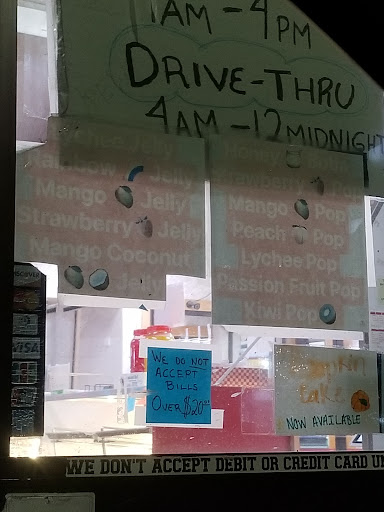 11AM - 4PM
DRIVE-THRU
4AM - 12 MIDNIGHT
Lychee Jelly
Rainbow Jelly
Mango Jelly
Strawberry Jelly
Mango Coconut
Jelly
Honey
Strawberry Pop
Mango Pop
Peach Pop
Lychee Pop
Passion Fruit Pop
Kiwi Pop
VISA
WE DO NOT
ACCEPT
BILLS
OVER $20.00
Pumpkin
Cake
NOW AVAILABLE
WE DON'T ACCEPT DEBIT OR CREDIT CARD